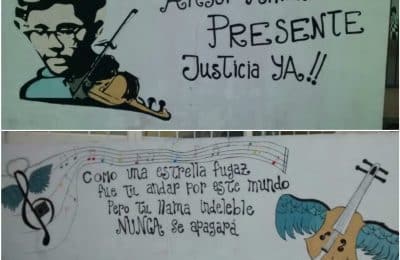 PRESENTE
Justicia YA!!
Como una estrella fugaz
fue tu andar por este mundo
Pero tu llama indeleble
NUNCA se apagará